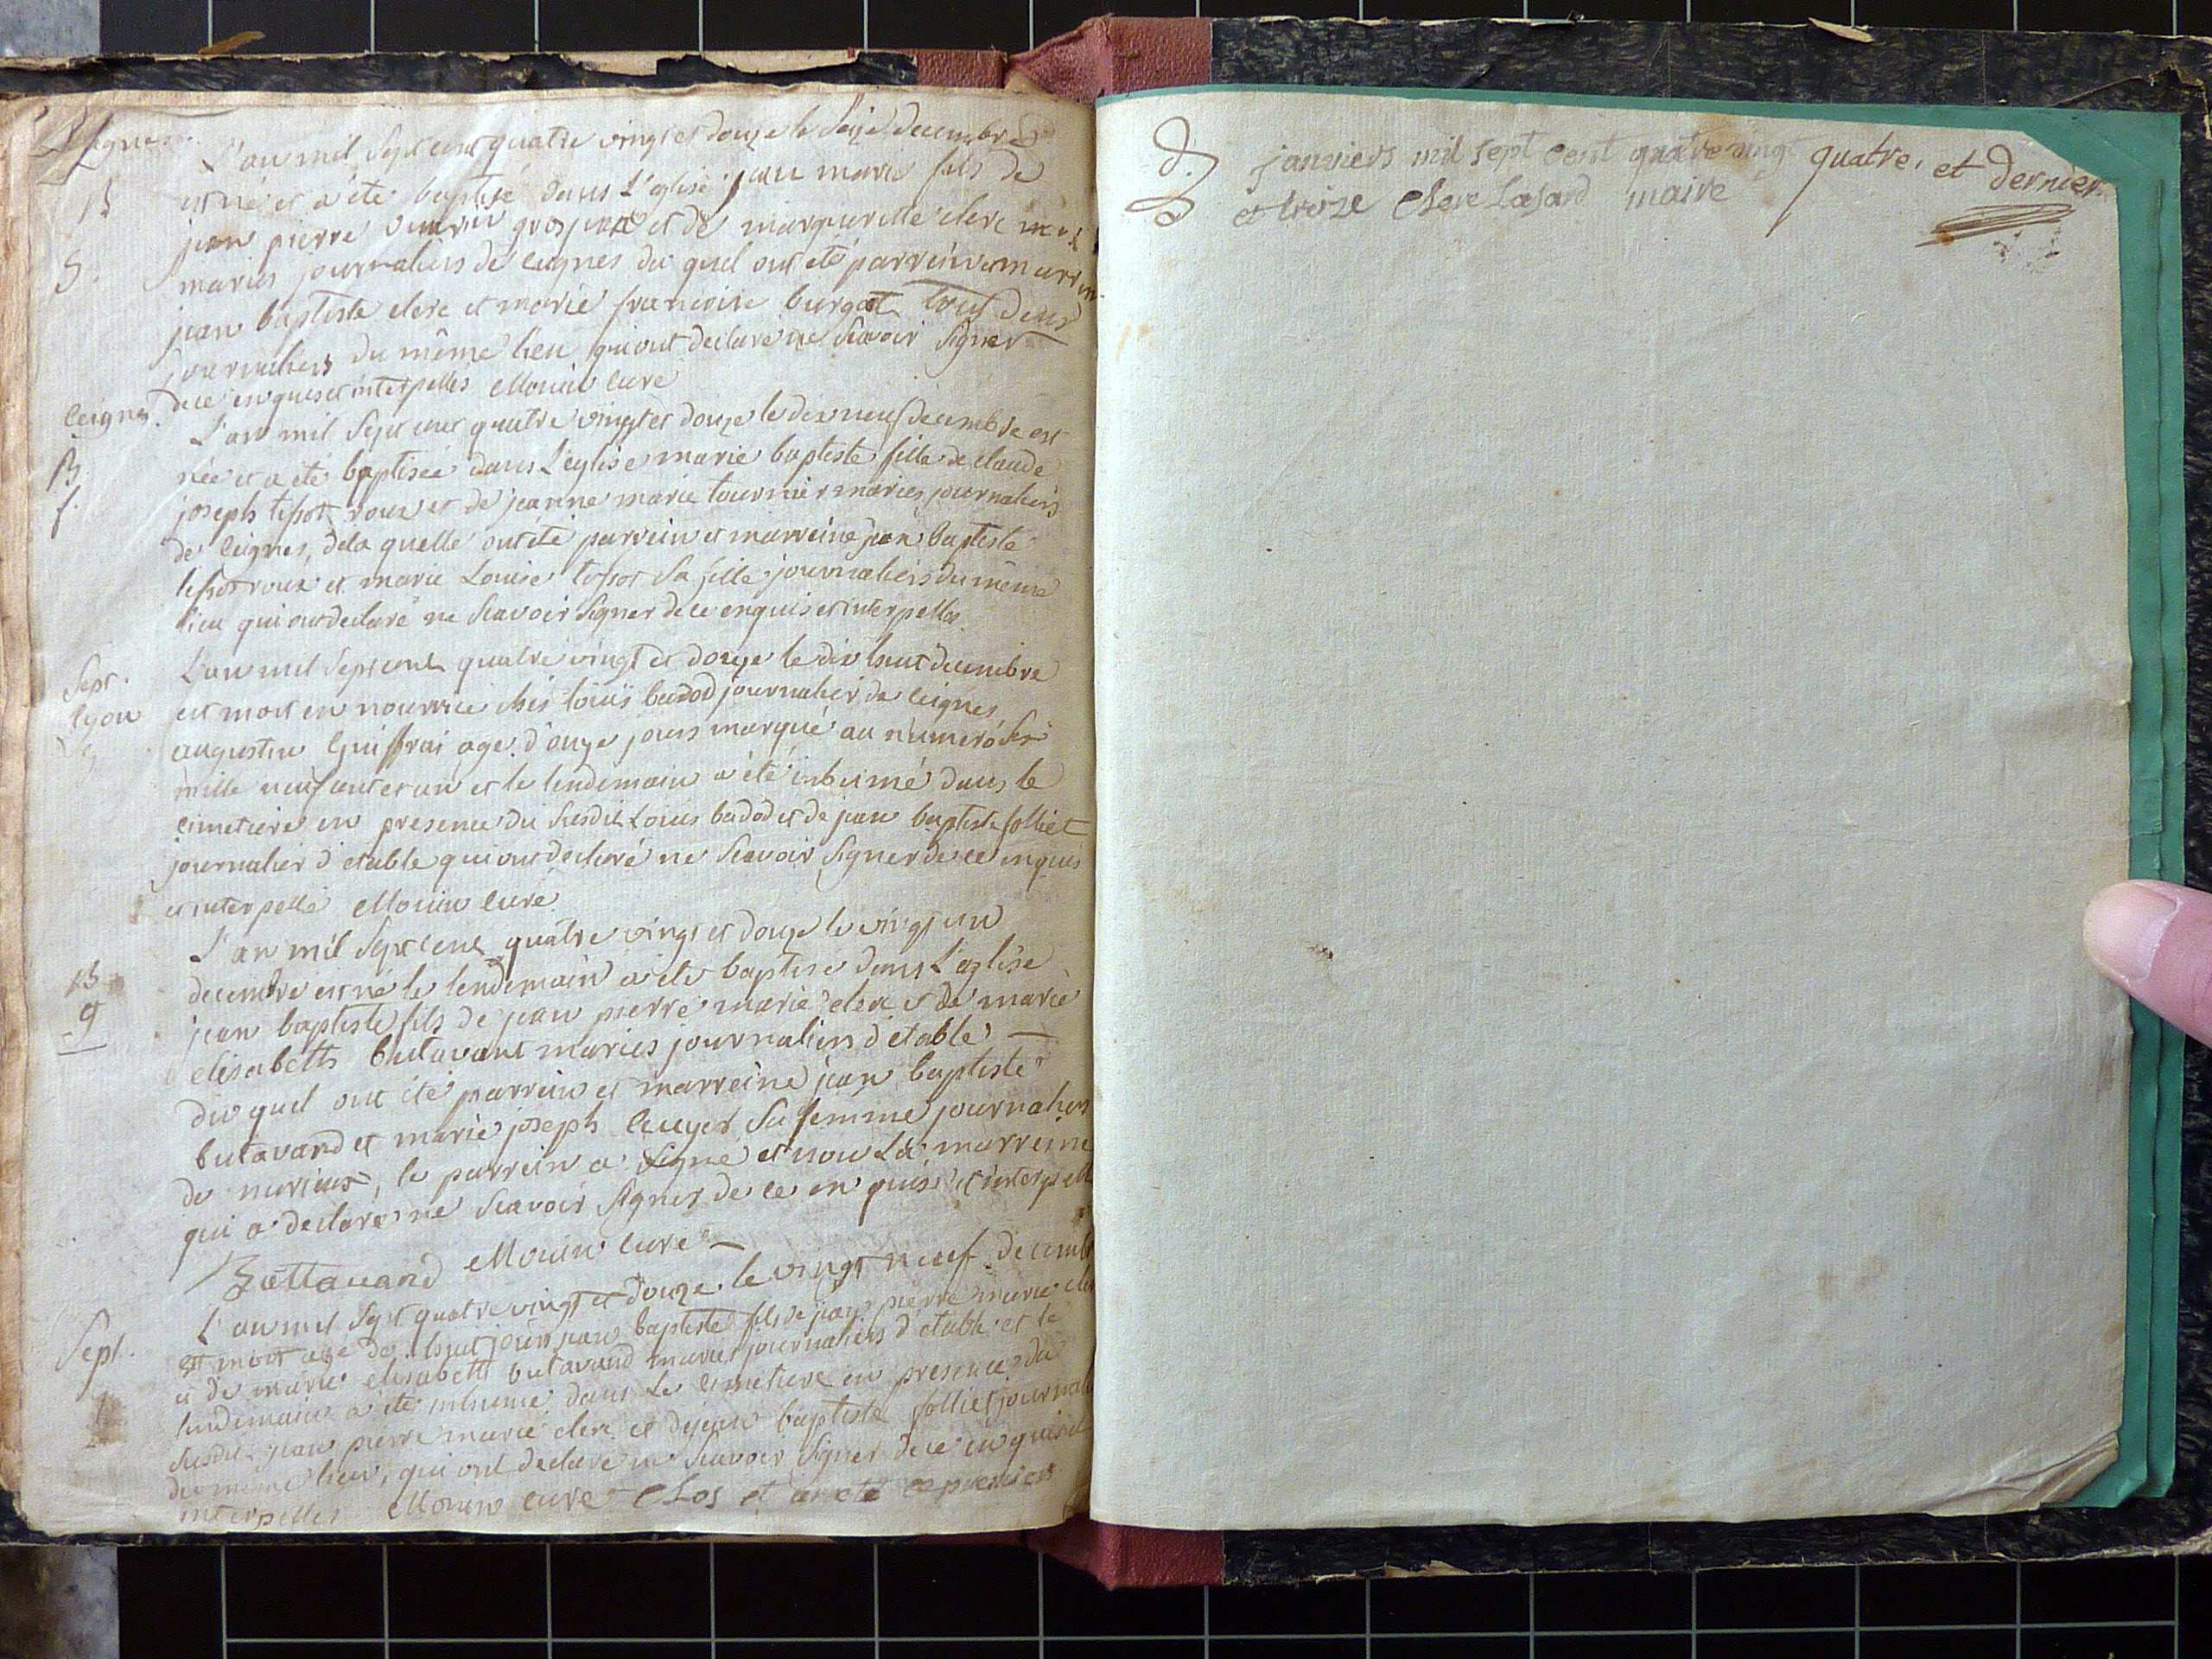 L'an mil sept cent quatre vingt et douze le seize decembre
B est né et a été baptisé dans L'eglise jean marie fils de
jean pierre grospiere et de margueritte clerc
G. mariés journaliers de ceignes du quel ont été parrein et marrein
jean baptiste clerc et marie francoise burgat tous deux
journaliers du même lieu qui ont declaré ne scavoir signer
de ce enquis et interpellés Monin curé
Ceignes. L'an mil sept cent quatre vingt et douze le dix neuf decembre est
B née et a été baptisée dans L'eglise marie baptiste fille de claude
f. joseph tissot roux et de jeanne marie tournier mariés journaliers
de ceignes, dela quelle ont été parrein et marreine jean baptiste
tissot roux et marie Louise tissot sa fille journaliers du même
lieu qui ont declaré ne scavoir signer de ce enquis et interpellés
L'an mil sept cent quatre vingt et douze le dix huit decembre
Sept. lyon est mort en nourrice chés loüis badod journalier de ceignes
augustin agé d'onze jours marqué au numero six
mille neuf cent et un et le lendemain a été inhumé dans le
cimetiere en presence du susdit Loüis badod et de jean baptiste folliet
journalier d'etable qui ont declaré ne scavoir signer de ce enquis
et interpellé Monin curé
L'an mil sept cent quatre vingt et douze le vingt un
B decembre est né le lendemain a été baptisé dans L'eglise
g jean baptiste fils de jean pierre marie clerc et de marie
elisabeth butavant mariés journaliers d'etable —
du quel ont été parrein et marreine jean baptiste
butavand et marie joseph sa femme journaliers
de nurieux, le parrein a signé et non La marreine
qui a declaré ne scavoir signer de ce enquise et interpellé
Buttavand Monin curé —
L'an mil sept quatre vingt et douze le vingt neuf decembre
Sept. est mort agé de huit jours jean baptiste fils de jean pierre marie clerc
et de marie elisabeth butavand mariés journaliers d'etable et le
lendemain a été inhumé dans Le cimetiere en presence du
susdit jean pierre marie clerc et de jean baptiste folliet journalier
du meme lieu, qui ont declaré ne scavoir signer de ce enquis et
interpellés Monin curé Clos et areté ce premiers
d. janviers mil sept cent quatre vingt
et treize Clerc Lasard maire
quatre. et dernier.